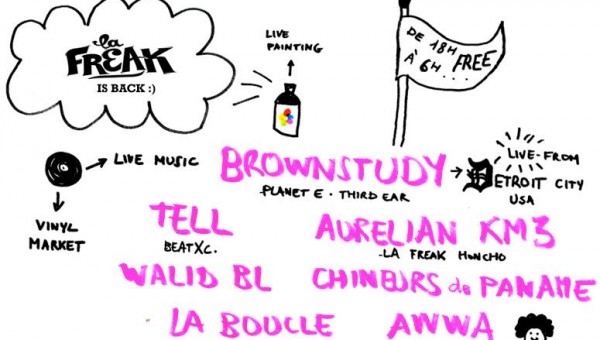 La
FREAK
IS BACK :)
LIVE
PAINTING
DE 18H
À 6H....
FREE
LIVE MUSIC
VINYL
MARKET
BROWNSTUDY
PLANET E . THIRD EAR
LIVE-FROM
DETROIT CITY
USA
TELL
BEATXC.
AURELIAN KM3
LA FREAK HONCHO
WALID BL
CHINEURS de PANAME
LA BOUCLE
AWWA